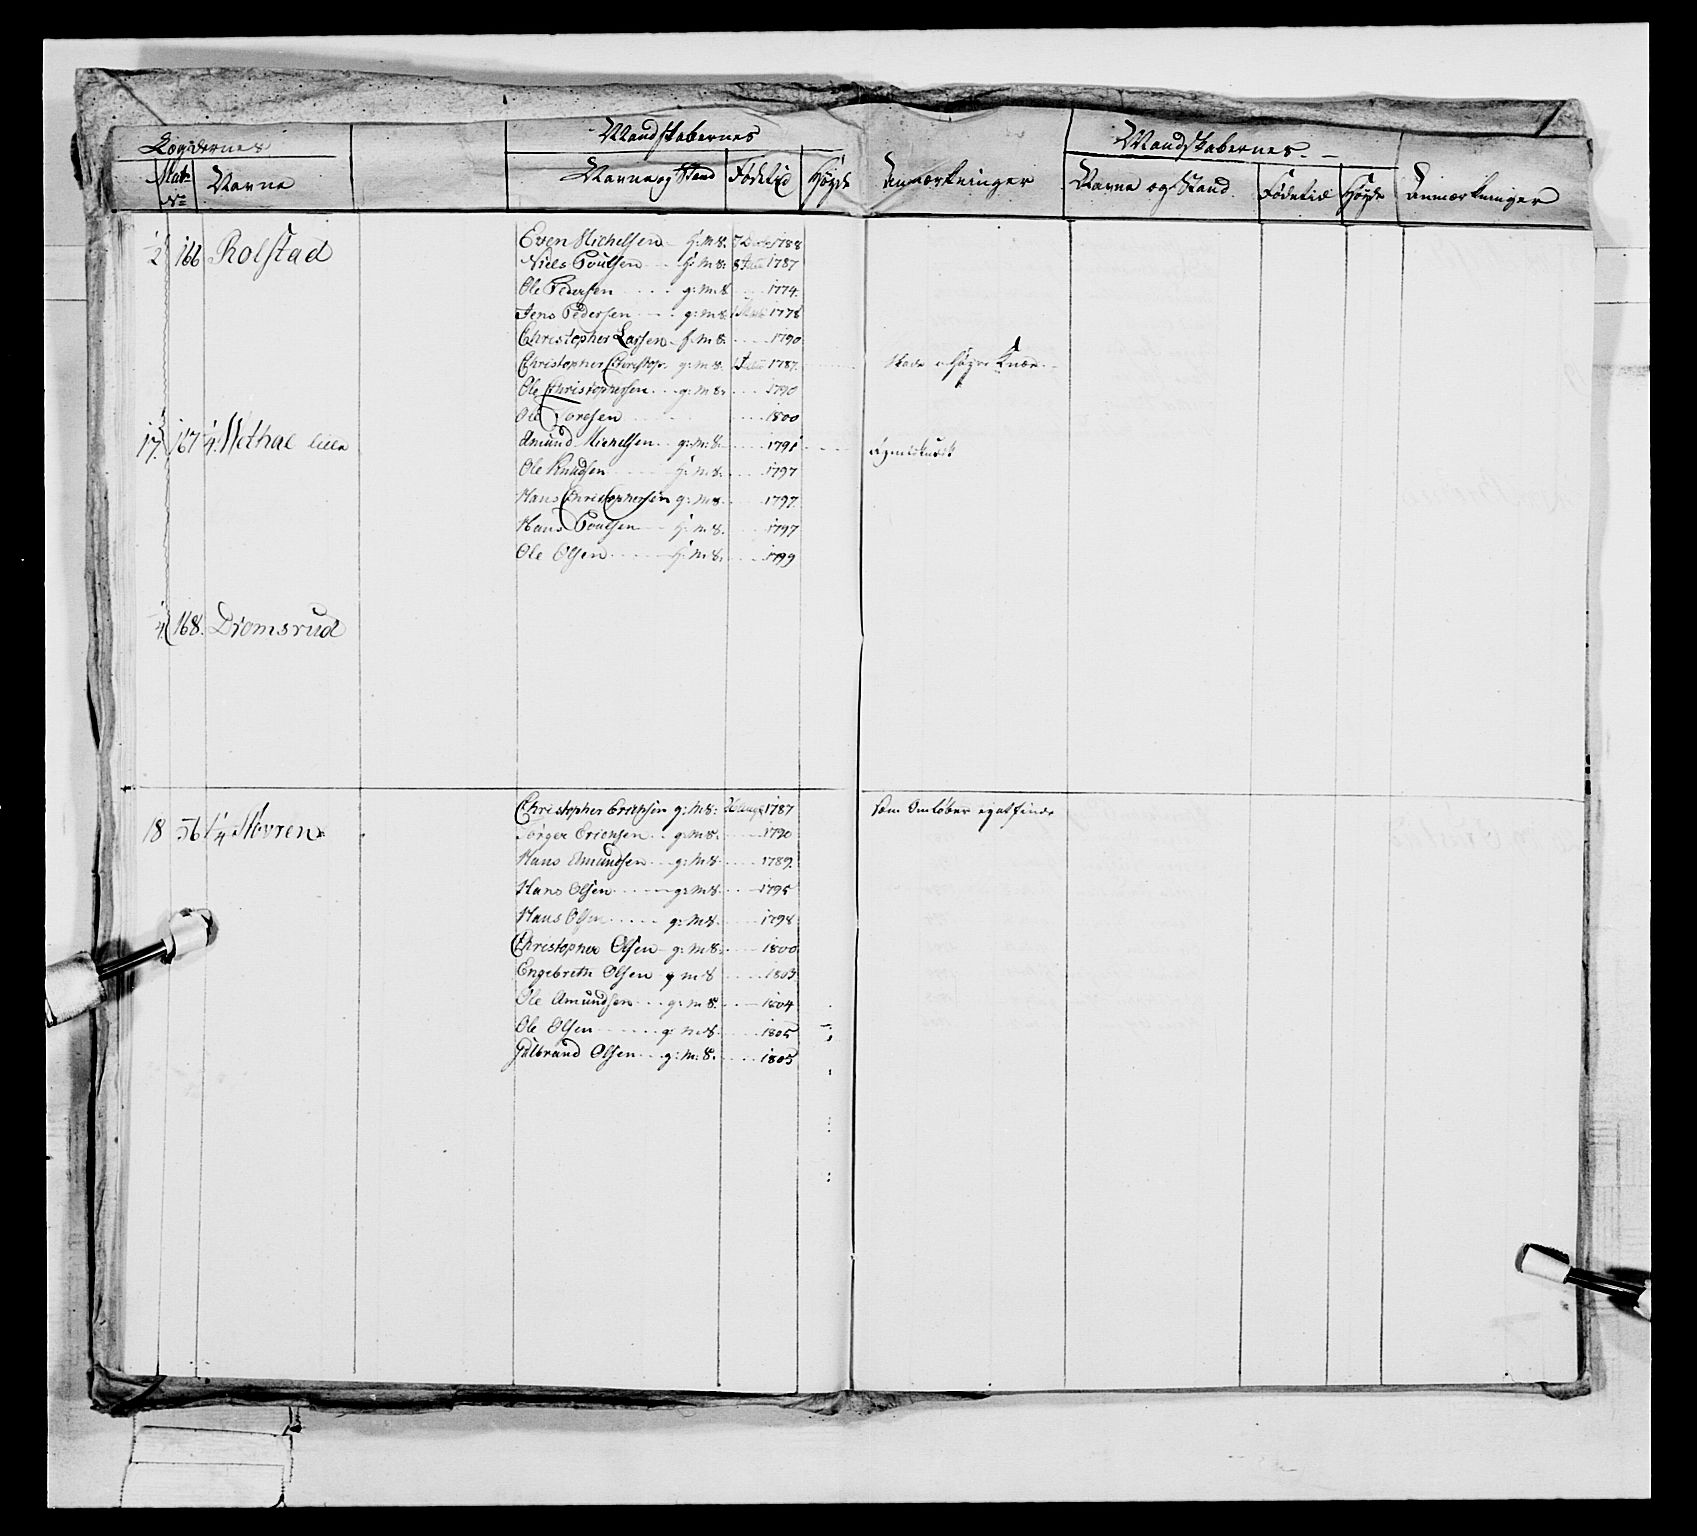 Lægdernes Mandskabernes Mandskabernes
Matr Navne Navne og Stand Fødetid Høyde Anmærkninger Navne og Stand Fødetid Høyde Anmærkninger
No
½ 166 Rolstad Even Michelsen g: M 8. 1788
Niels Poulsen g: m 8. 1787
Ole Pedersen g: m. 8 1774.
Jens Pedersen g: m 8 1778
Christopher Larsen g. m 8. 1790
Christopher Christoph. g: m 8. 1787. høyre Knæe
Ole Christophersen g: m 8. 1790
Ole 1800
17. 167 ¼. Methae lille Amund Michelsen g: m: 8. 1791
Ole Knudsen g: m 8. 1797
Hans Christophersen g: m 8. 1797.
Hans Poulsen g: m. 8. 1797
Ole Olsen g: m 8. 1799
¼ 168. Diomsrud
18 ¼ Movren Christopher Erichsen g: m 8: 1787 som Omløber
Erichsen g: m 8. 1790
Hans Amundsen g: m 8. 1789.
Hans Olsen g: m 8. 1795
Hans Olsen g: m 8. 1798
Christopher Olsen g: m 8. 1800
Engebreth Olsen g m 8 1803
Ole Amundsen g: m 8. 1804
Ole Olsen g: m 8. 1805
Gulbrand Olsen g: m. 8. 1805